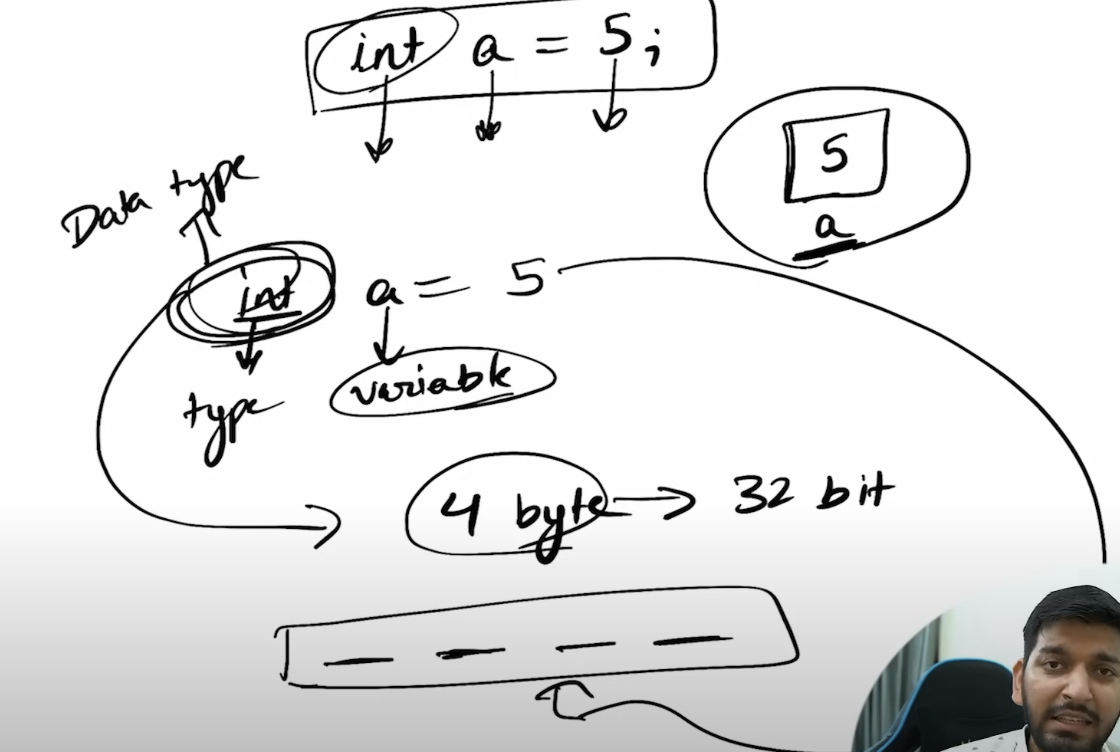 int a = 5;
5
a
Data type
int a = 5
type
variable
4 byte → 32 bit